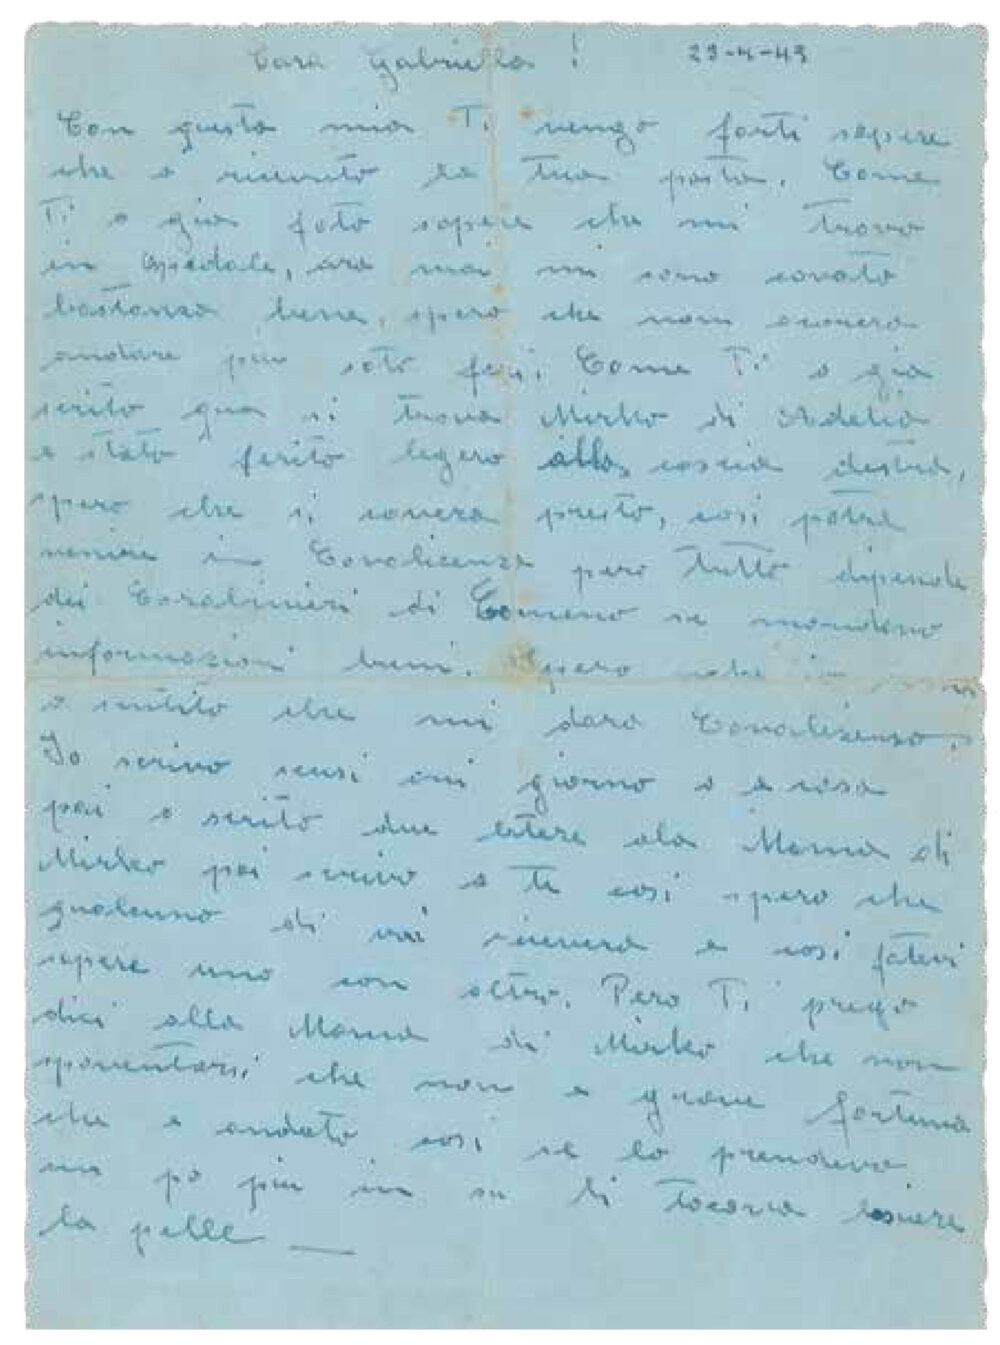 Cara Gabriella! 29-4-43
Con questa mia Ti vengo farti sapere
che o ricevuto la tua posta. Come
Ti o gia fato sapere che mi trovo
in Ospedale, ora mai mi sono
bastanza bene, spero che non
andare piu soto feri. Come Ti o gia
scrito qua si trova Mirko di Adelia
e stato ferito legero alla coscia destra,
spero che si presto, cosi potra
venire in Convalicenza pero tutto dipende
dei Carabinieri di Comeno se mandano
informazioni beni. Spero che
o sentito che mi dara Convalicenza.
Io scrivo scusi oni giorno o a casa
poi o scrito due letere ala Mama di
Mirko poi scrivo a te cosi spero che
qualcuno di voi ricevera e cosi fatevi
sapere uno con altro. Pero Ti prego
dici alla Mama di Mirko che non
spaventarsi che non e grave fortuna
che e andato cosi se lo prendeva
un po piu in su li tocava lasciare
la pelle —